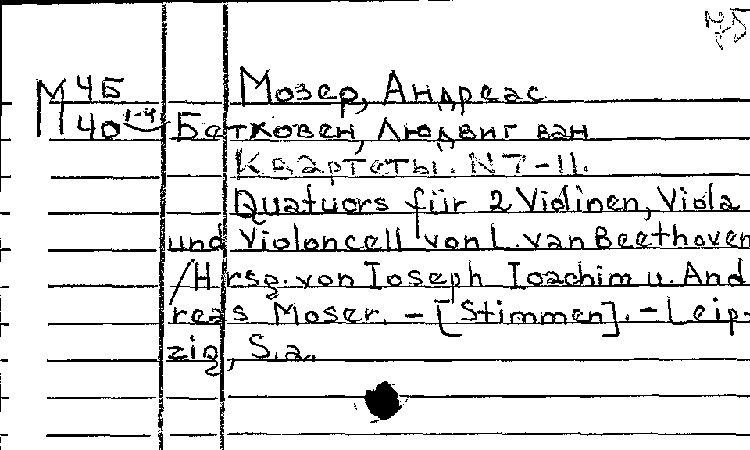 М 45 Мозер, Андреас
40 1-4 Бетховен, Людвиг ван
Квартеты. N 7-11.
Quatuors für 2 Violinen, Viola
und Violoncell von L. van Beethoven
/Hrsg. von Ioseph Ioachim u. And
reas Moser. - [Stimmen]. - Leip-
zig, S.a.